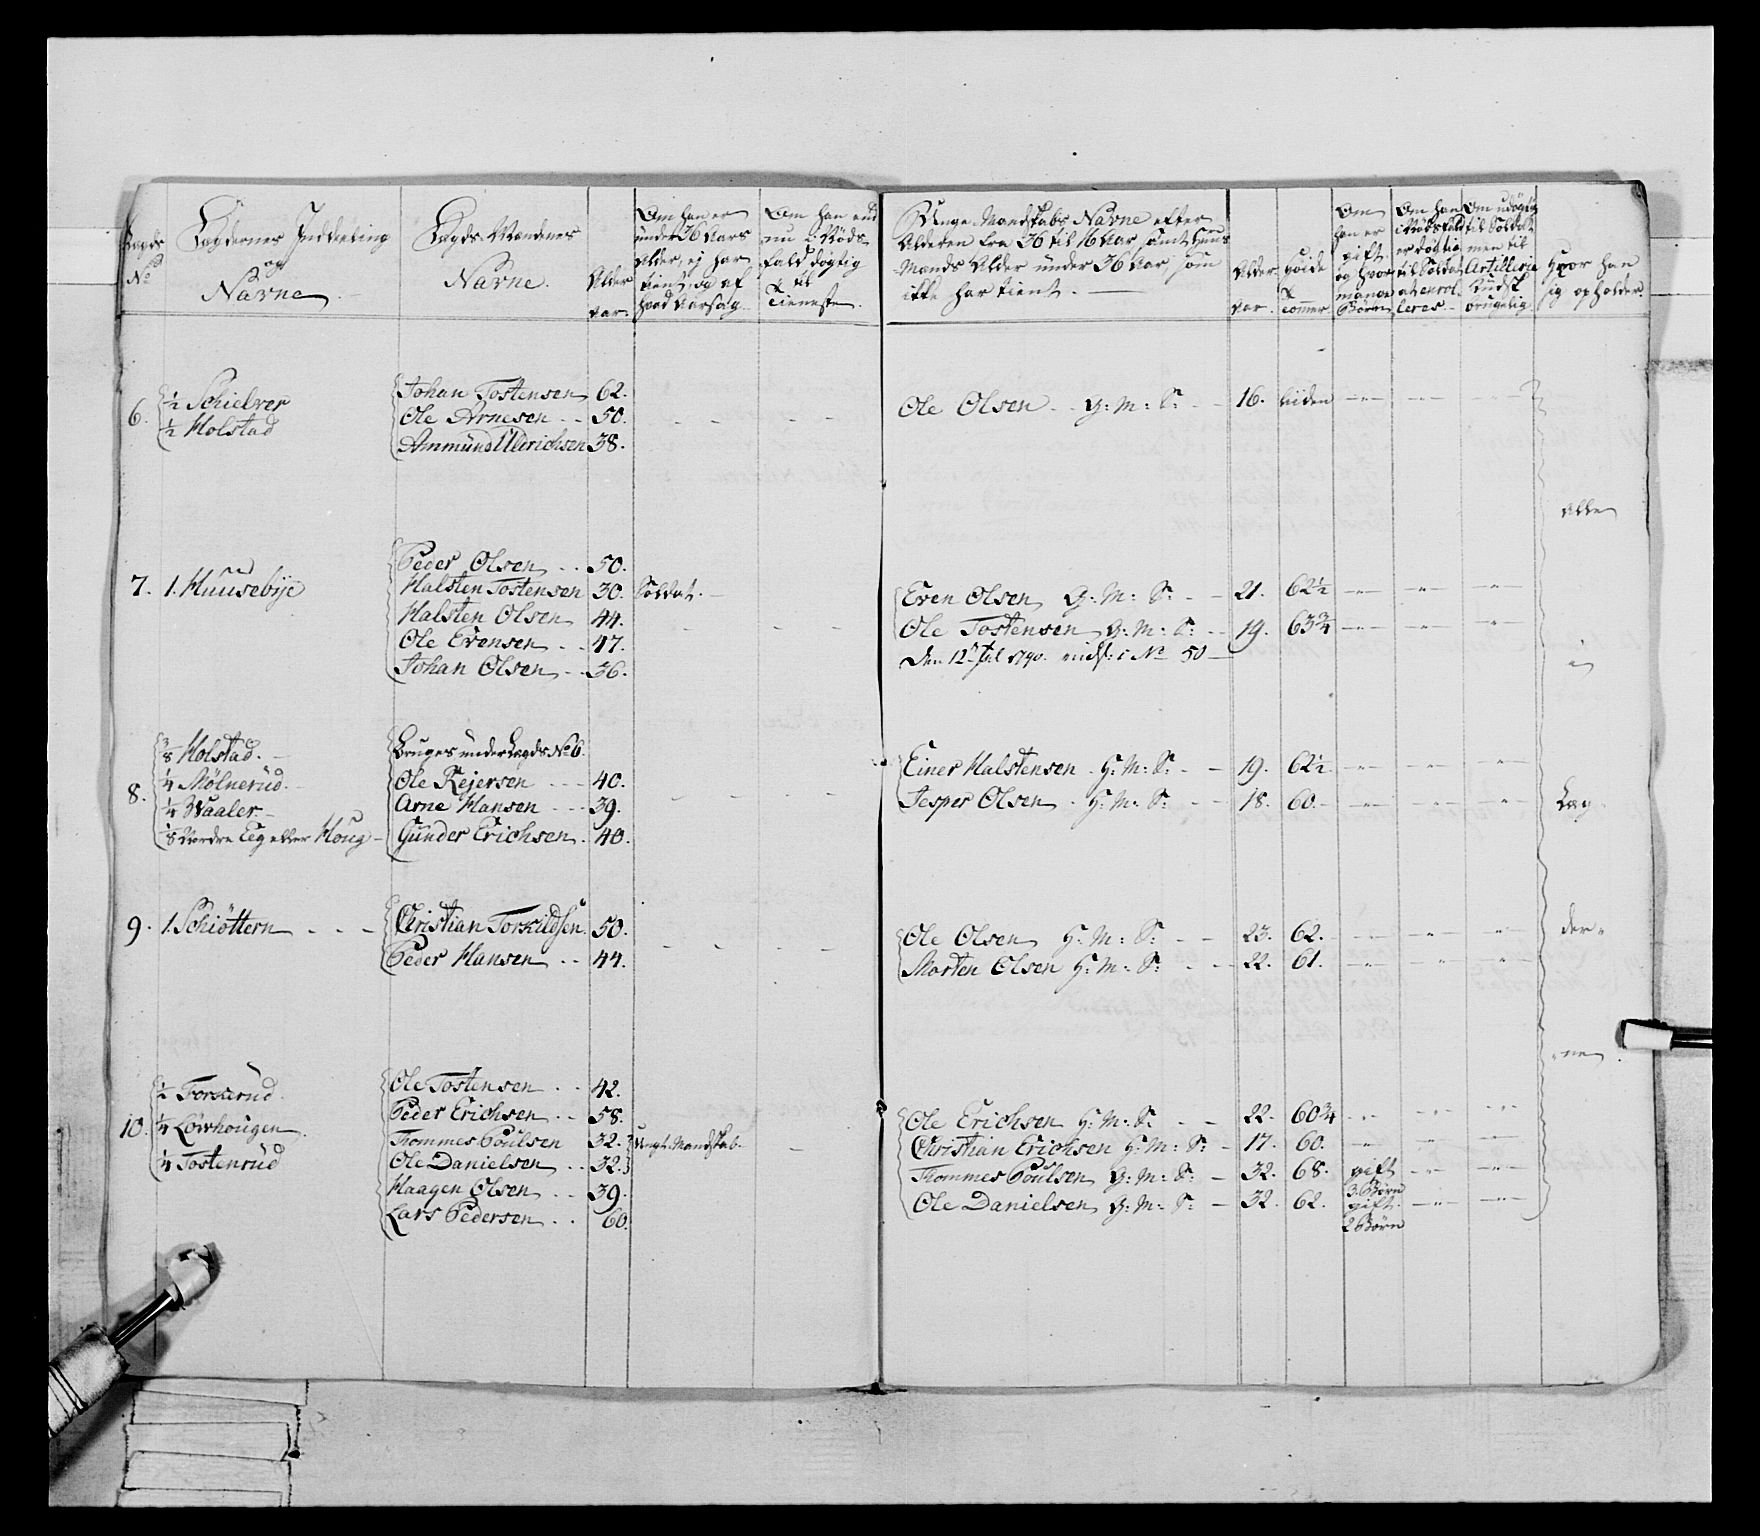 Lægds No
Lægdernes Inddeeling
og
Navne.
Lægds Mændenes
Navne.
Alder
aar.
Om han er
under 36 Aars
Alder, ej har
tient, og af
hvad Aarsag.
Om han end
nu i Nøds
fald døgtig
til
Tieneste.
Unge Mandskabs Navne efter
Alderen fra 36 til 16 Aar samt Huus
Mænds Alder under 36 Aar som
ikke har tient.
Alder
aar.
Høide
Tommer
Om
han er
gift
og hvor
mange
Børn
Om han
i Nødsfald
er døgtig
til Soldat
at enrol-
leres
Om udøgtig
til Soldat
men til
Artillerie
Kudsk
brugelig
Hvor han
sig opholder.
6.
½ Schielver
½ Holstad
Johan Tostensen 62.
Ole Arnesen 50.
Ammund Ullrichsen 38.
Ole Olsen G: M: S: 16. liiden
alle
7. 1. Huusebye
Peder Olsen 50.
Halsten Tostensen 30. Soldat.
Halsten Olsen 44.
Ole Evensen 47.
Johan Olsen 36.
Even Olsen G: M: S: 21. 62½
Ole Tostensen G: M: S: 19. 63¾
Den 12te Jul 1790. indf: i No 50
i
8.
⅜ Holstad.
¼ Mølnerud.
¼ Waaler.
⅛ Nordre Eeg eller Houg
Bruges under Lægds No 6.
Ole Rejersen 40.
Arne Hansen 39.
Gunder Erichsen 40.
Einer Halstensen H: M: S: 19. 62½
Jesper Olsen H: M: S: 18. 60.
Læg-
9. 1. Schiøttern
Christian Torkildsen 50.
Peder Hansen 44.
Ole Olsen H: M: S: 23. 62.
Morten Olsen H: M: S: 22. 61.
der-
ne
10.
½ Torkerud.
¼ Løvhougen.
¼ Tostenrud
Ole Tostensen 42.
Peder Erichsen 58.
Tommes Poulsen 32. Ungt Mandskab.
Ole Danielsen 32.
Haagen Olsen 39.
Lars Pedersen 60.
Ole Erichsen H: M: S: 22. 60¾
Christian Erichsen H: M: S: 17. 60.
Tommes Poulsen G: M: S: 32. 68. gift
3. Børn
Ole Danielsen G: M: S: 32. 62. gift.
2 Børn